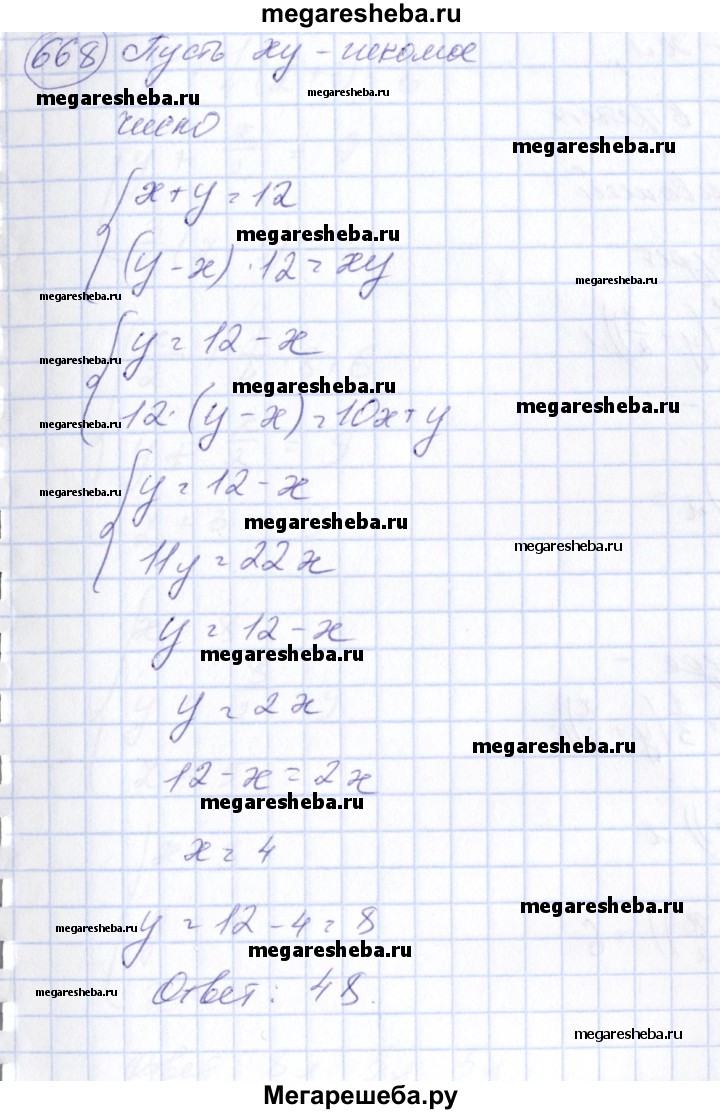 megaresheba.ru
668 Пусть xy - искомое
megaresheba.ru
megaresheba.ru
число
megaresheba.ru
x + y = 12
megaresheba.ru
(y - x) · 12 = xy
megaresheba.ru
megaresheba.ru
y = 12 - x
megaresheba.ru
megaresheba.ru
megaresheba.ru
12 · (y - x) = 10x + y
megaresheba.ru
y = 12 - x
megaresheba.ru
megaresheba.ru
megaresheba.ru
11y = 22x
y = 12 - x
megaresheba.ru
y = 2x
megaresheba.ru
12 - x = 2x
megaresheba.ru
x = 4
megaresheba.ru
y = 12 - 4 = 8
megaresheba.ru
megaresheba.ru
Ответ: 48.
megaresheba.ru
megaresheba.ru
Мегарешеба.ру